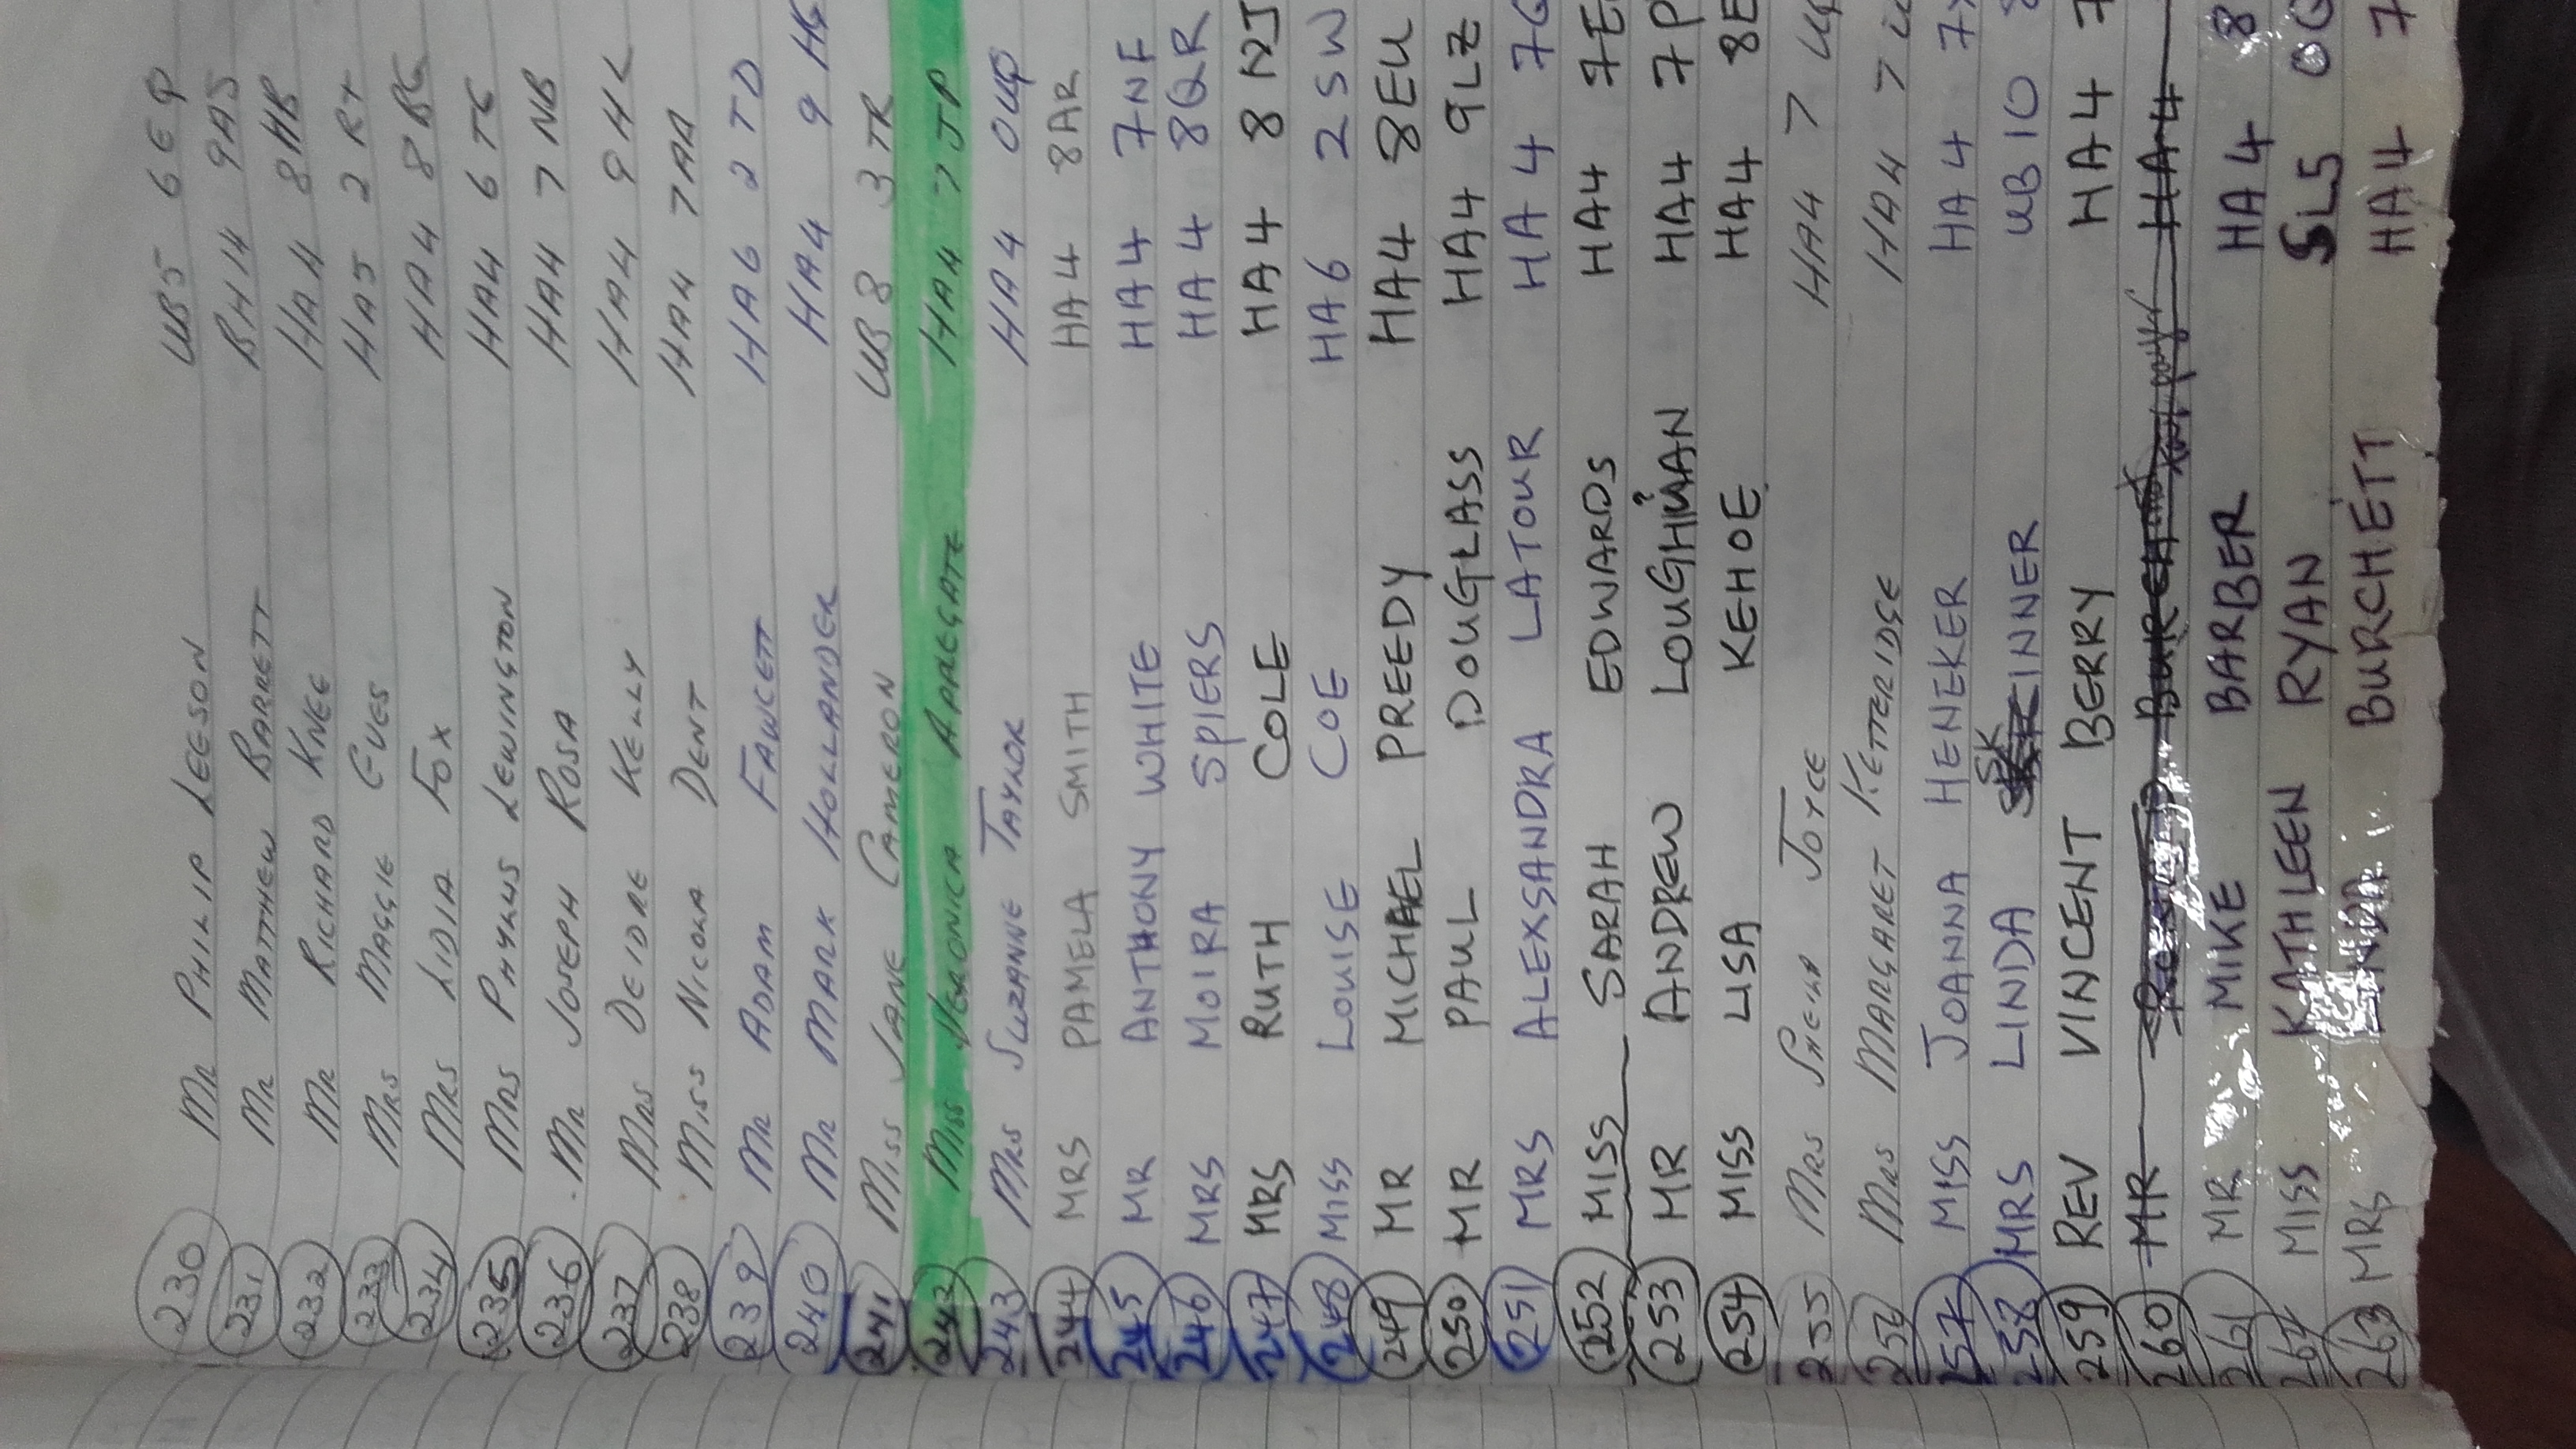 230 MR PHILIP LEESON UB5 6EQ
231 MR MATTHEW BARRETT BH14 9AS
232 MR RICHARD KNEE HA4 8HB
233 MRS MAGGIE EVES HA5 2RX
234 MRS LIDIA FOX HA4 8BG
235 MRS PHYLLIS LEWINGTON HA4 6TG
236 MR JOSEPH ROSA HA4 7NB
237 MRS DEIDRE KELLY HA4 9HL
238 MISS NICOLA DENT HA4 7AA
239 MR ADAM FAWCETT HA6 2TD
240 MR MARK HOLLANDER HA4 9HG
241 MISS JANE CAMERON UB8 3TR
242 MISS VERONICA APPLEGATE HA4 7JP
243 MRS SUZANNE TAYLOR HA4 0UQ
244 MRS PAMELA SMITH HA4 8AR
245 MR ANTHONY WHITE HA4 7NF
246 MRS MOIRA SPIERS HA4 8QR
247 MRS RUTH COLE HA4 8NJ
248 MISS LOUISE COE HA6 2SW
249 MR MICHAEL PREEDY HA4 8EU
250 MR PAUL DOUGLASS HA4 9LZ
251 MRS ALEXSANDRA LATOUR HA4
252 MISS SARAH EDWARDS HA4 7E
253 MR ANDREW LOUGHMAN ? HA4 7P
254 MISS LISA KEHOE HA4 8E
255 MRS SHEILA JOYCE HA4 7 UQ
256 MRS MARGARET KETTERIDGE HA4 7
257 MISS JOANNA HENEKER HA4 7
258 MRS LINDA SKINNER UB10
259 REV VINCENT BERRY HA4 7
260 MR BURCH not tax payer HA4
261 MR MIKE BARBER HA4 8
262 MISS KATHLEEN RYAN SL5
263 MRS LINDA BURCHETT HA4 7